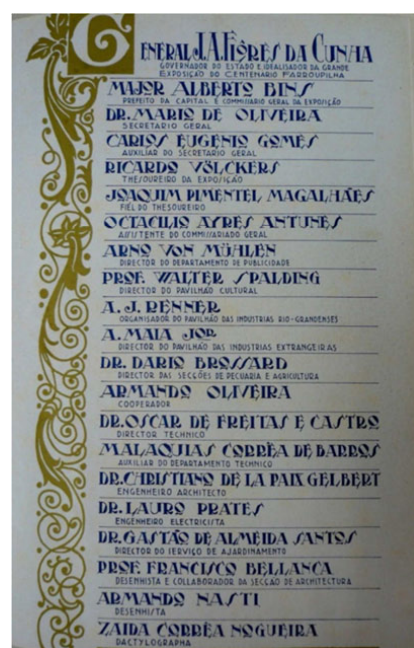 GENERAL J.A. FLÔRES DA CUNHA
GOVERNADOR DO ESTADO E IDEALISADOR DA GRANDE
EXPOSIÇÃO DO CENTENARIO FARROUPILHA
MAJOR ALBERTO BINS
PREFEITO DA CAPITAL E COMMISSARIO GERAL DA EXPOSIÇÃO
DR. MARIO DE OLIVEIRA
SECRETARIO GERAL
CARLOS EUGÊNIO GOMES
AUXILIAR DO SECRETARIO GERAL
RICARDO VÖLCKERS
THESOUREIRO DA EXPOSIÇÃO
JOAQUIM PIMENTEL MAGALHÃES
FIEL DO THESOUREIRO
OCTACILIO AYRES ANTUNES
ASSISTENTE DO COMMISSARIADO GERAL
ARNO VON MÜHLEN
DIRECTOR DO DEPARTAMENTO DE PUBLICIDADE
PROF. WALTER SPALDING
DIRECTOR DO PAVILHÃO CULTURAL
A. J. RENNER
ORGANISADOR DO PAVILHÃO DAS INDUSTRIAS RIO-GRANDENSES
A. MAIA JOR.
DIRECTOR DO PAVILHÃO DAS INDUSTRIAS EXTRANGEIRAS
DR. DARIO BROSSARD
DIRECTOR DAS SECÇÕES DE PECUARIA E AGRICULTURA
ARMANDO OLIVEIRA
COOPERADOR
DR. OSCAR DE FREITAS E CASTRO
DIRECTOR TECHNICO
MALAQUIAS CORRÊA DE BARROS
AUXILIAR DO DEPARTAMENTO TECHNICO
DR. CHRISTIANO DE LA PAIX GELBERT
ENGENHEIRO ARCHITECTO
DR. LAURO PRATES
ENGENHEIRO ELECTRICISTA
DR. GASTÃO DE ALMEIDA SANTOS
DIRECTOR DO SERVIÇO DE AJARDINAMENTO
PROF. FRANCISCO BELLANCA
DESENHISTA E COLLABORADOR DA SECÇÃO DE ARCHITECTURA
ARMANDO NASTI
DESENHISTA
ZAIDA CORRÊA NOGUEIRA
DACTYLOGRAPHA